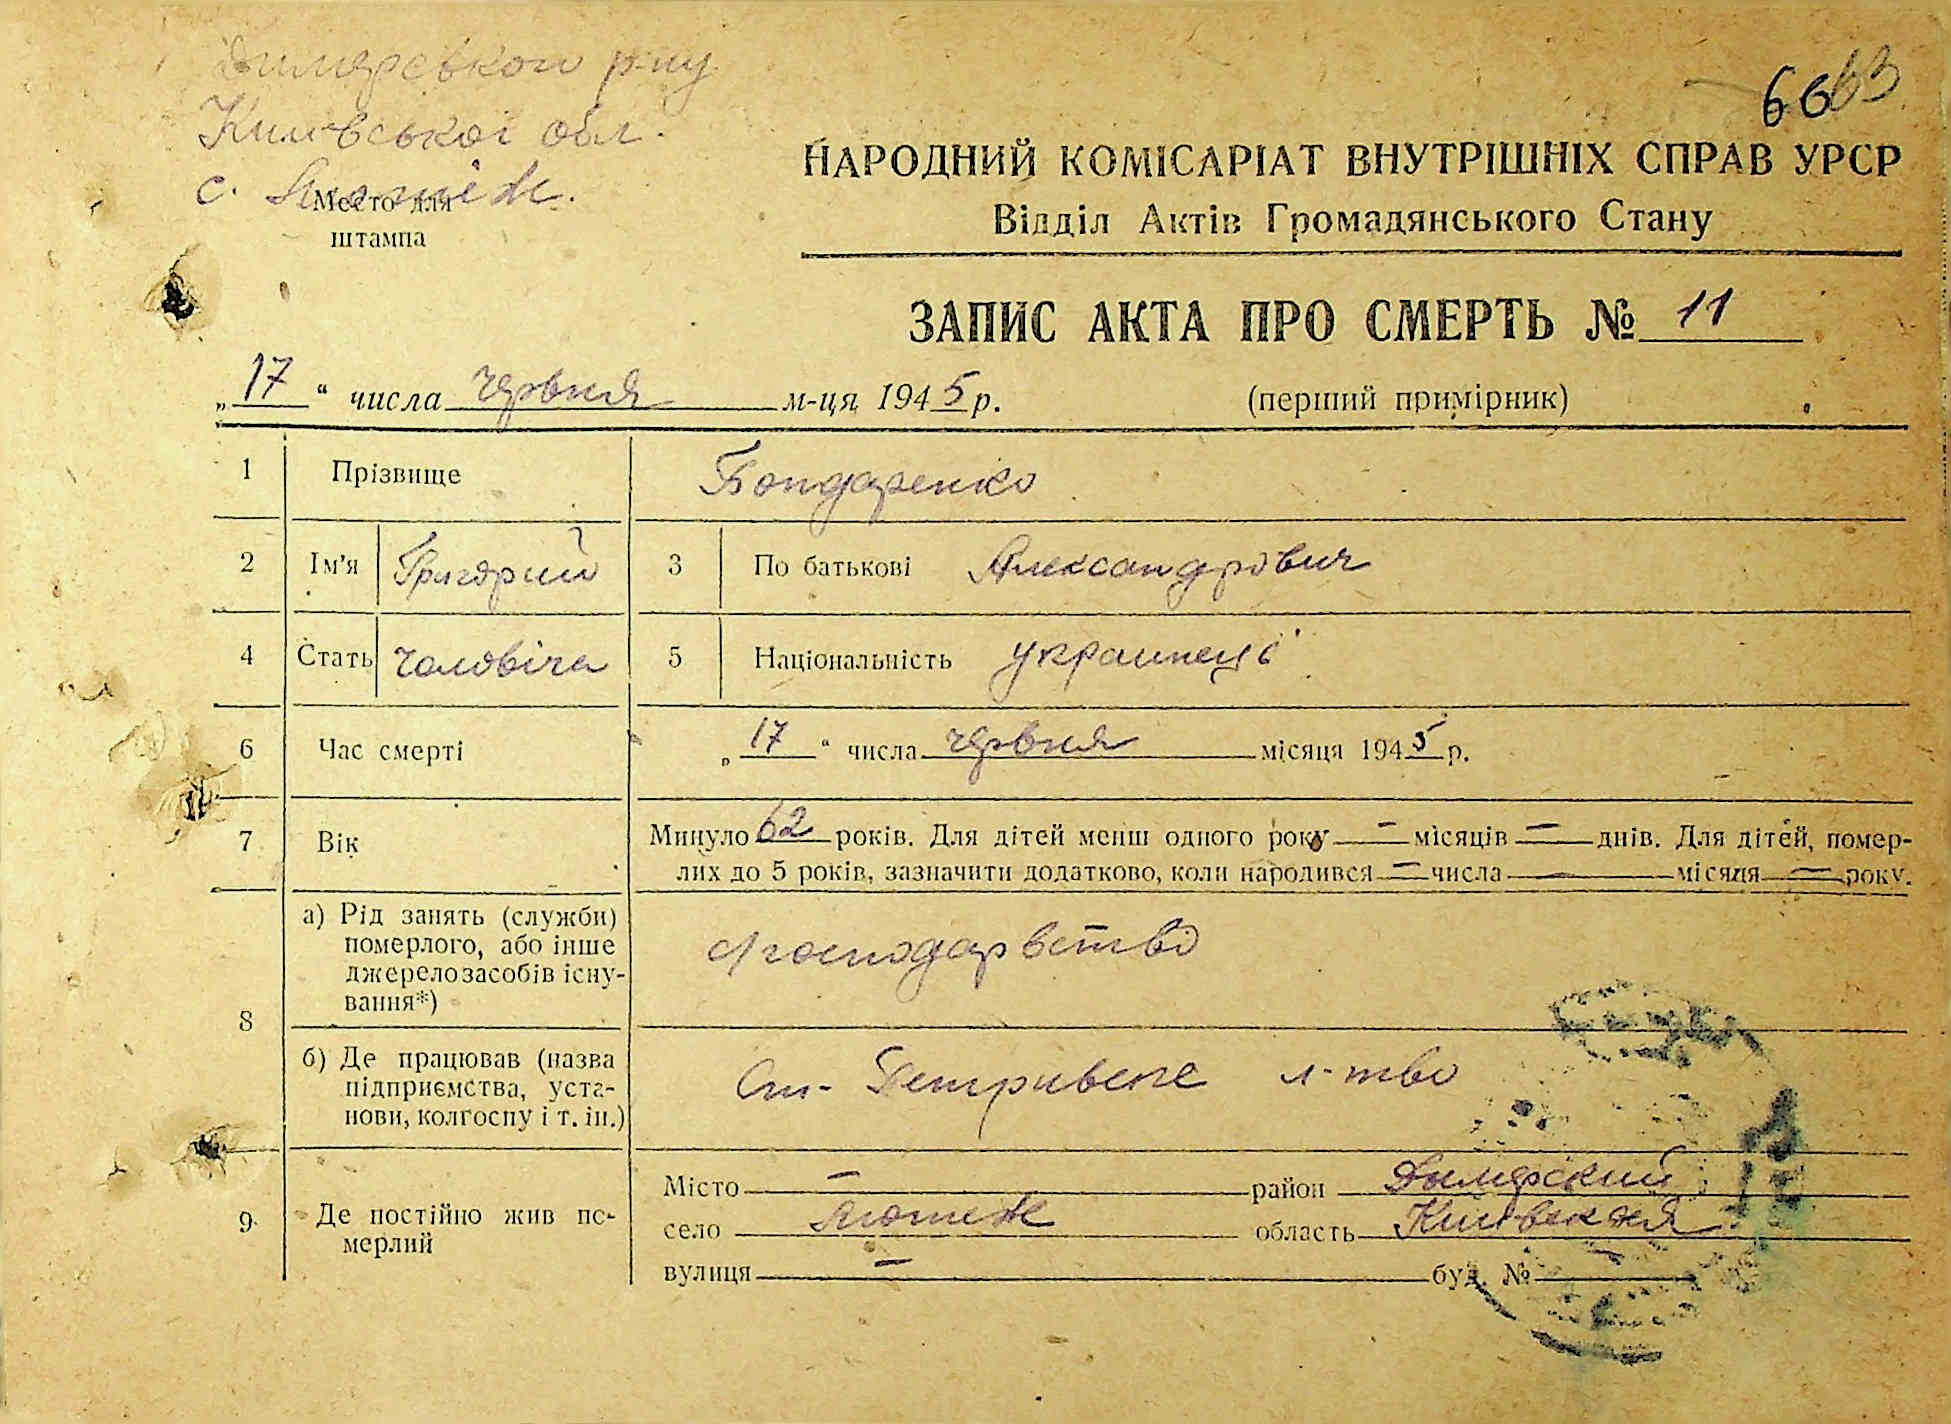 Димерського р-ну
Київської обл.
с. Лютіж.
Место для
штампа
6663
НАРОДНИЙ КОМІСАРІАТ ВНУТРІШНІХ СПРАВ УРСР
Відділ Актів Громадянського Стану
ЗАПИС АКТА ПРО СМЕРТЬ № 11
„17“ числа червня м-ця 1945 р. (перший примірник)
1 Прізвище Бондаренко
2 Ім'я Григорий 3 По батькові Александрович
4 Стать чоловіча 5 Національність украинець
6 Час смерті „17“ числа червня місяця 1945 р.
7 Вік Минуло 62 років. Для дітей менш одного року — місяців — днів. Для дітей, помер-
лих до 5 років, зазначити додатково, коли народився — числа — місяця — року.
8 а) Рід занять (служби)
померлого, або інше
джерело засобів існу-
вання*) господарвство
б) Де працював (назва
підприємства, уста-
нови, колгоспу і т. ін.) Ст- Петривске л-тво
9 Де постійно жив по-
мерлий
Місто — район Димерский
село Лютеж область Київская
вулиця — буд. №